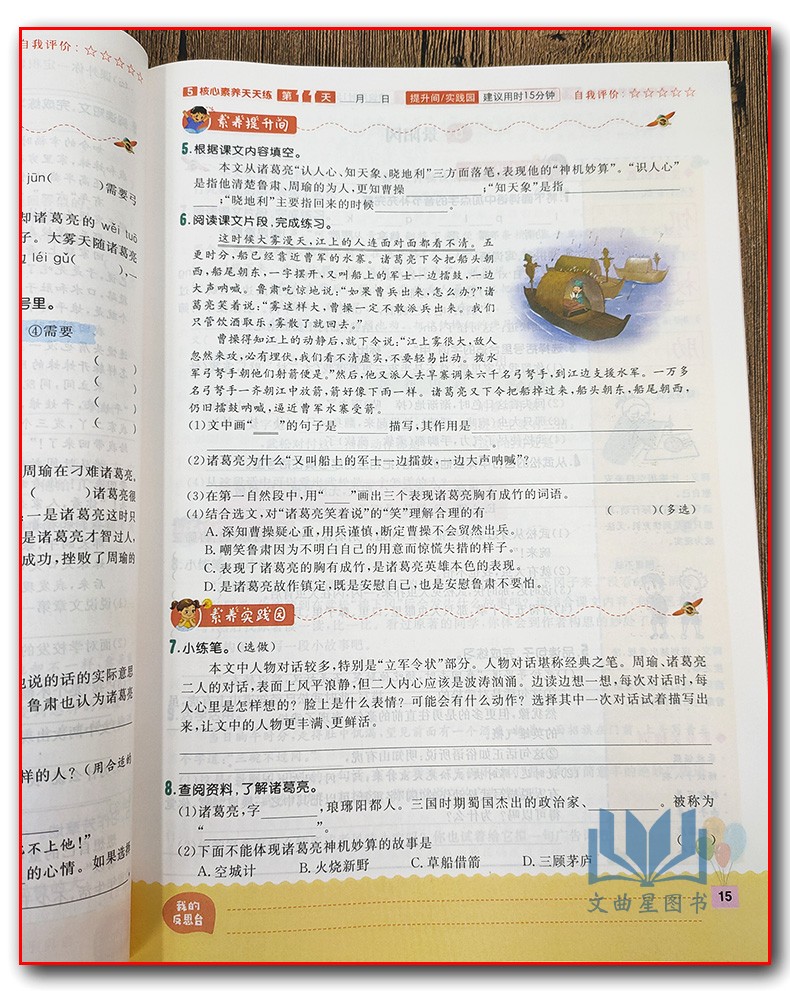 自我评价：☆☆☆☆☆
jūn(　　)需要弓
如诸葛亮的 wěi tuō
子。大雾天随诸葛亮
léi gǔ(　　),一
号里。
④需要
(　　)
(　　)
(　　)
(　　)
周瑜在刁难诸葛亮。
(　　)诸葛亮很
一是诸葛亮这时只
是诸葛亮才智过人，
成功，挫败了周瑜的
也说的话的实际意思
鲁肃也认为诸葛亮
样的人？(用合适的
不上他！”
的心情。如果选择
5 核心素养天天练 第11天 __月__日 提升间/实践园 建议用时15分钟 自我评价：☆☆☆☆☆
素养提升间
5.根据课文内容填空。
本文从诸葛亮“认人心、知天象、晓地利”三方面落笔，表现他的“神机妙算”。“识人心”
是指他清楚鲁肃、周瑜的为人，更知曹操________；“知天象”是指________
____；“晓地利”主要指回来的时候________。
6.阅读课文片段，完成练习。
这时候大雾漫天，江上的人连面对面都看不清。五
更时分，船已经靠近曹军的水寨。诸葛亮下令把船头朝
西，船尾朝东，一字摆开，又叫船上的军士一边擂鼓，一边
大声呐喊。鲁肃吃惊地说：“如果曹兵出来，怎么办？”诸
葛亮笑着说：“雾这样大，曹操一定不敢派兵出来。我们
只管饮酒取乐，雾散了就回去。”
曹操得知江上的动静后，就下令说：“江上雾很大，敌人
忽然来攻，必有埋伏，我们看不清虚实，不要轻易出动。拨水
军弓弩手朝他们射箭便是。”然后，他又派人去旱寨调来六千名弓弩手，到江边支援水军。一万多
名弓弩手一齐朝江中放箭，箭好像下雨一样。诸葛亮又下令把船掉过来，船头朝东，船尾朝西，
仍旧擂鼓呐喊，逼近曹军水寨受箭。
(1)文中画“___”的句子是____描写，其作用是________
________。
(2)诸葛亮为什么“又叫船上的军士一边擂鼓，一边大声呐喊”？
(3)在第一自然段中，用“___”画出三个表现诸葛亮胸有成竹的词语。
(4)结合选文，对“诸葛亮笑着说”的“笑”理解合理的有 (　　)(多选)
A.深知曹操疑心重，用兵谨慎，断定曹操不会贸然出兵。
B.嘲笑鲁肃因为不明白自己的用意而惊慌失措的样子。
C.表现了诸葛亮的胸有成竹，是诸葛亮英雄本色的表现。
D.是诸葛亮故作镇定，既是安慰自己，也是安慰鲁肃不要怕。
素养实践园
7.小练笔。(选做)
本文中人物对话较多，特别是“立军令状”部分。人物对话堪称经典之笔。周瑜、诸葛亮
二人的对话，表面上风平浪静，但二人内心应该是波涛汹涌。边读边想一想，每次对话时，每
人心里是怎样想的？脸上是什么表情？可能会有什么动作？选择其中一次对话试着描写出
来，让文中的人物更丰满、更鲜活。
8.查阅资料，了解诸葛亮。
(1)诸葛亮，字________，琅琊阳都人。三国时期蜀国杰出的政治家、________。被称为
“________”。
(2)下面不能体现诸葛亮神机妙算的故事是 (　　)
A.空城计 B.火烧新野 C.草船借箭 D.三顾茅庐
我的
反思台
文曲星图书
15